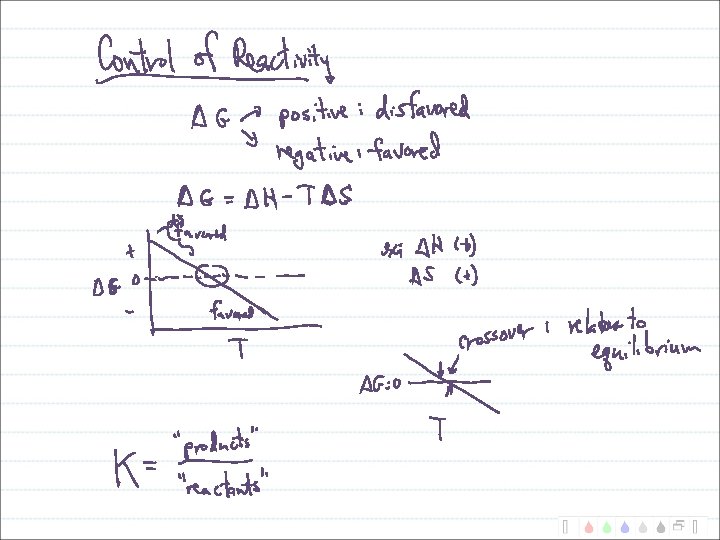 Control of Reactivity
ΔG
positive : disfavored
negative : favored
ΔG = ΔH - TΔS
disfavored
+
ΔG 0
-
favored
T
ΔH (+)
ΔS (+)
crossover : relates to
equilibrium
ΔG=0
T
K = "products"
"reactants"